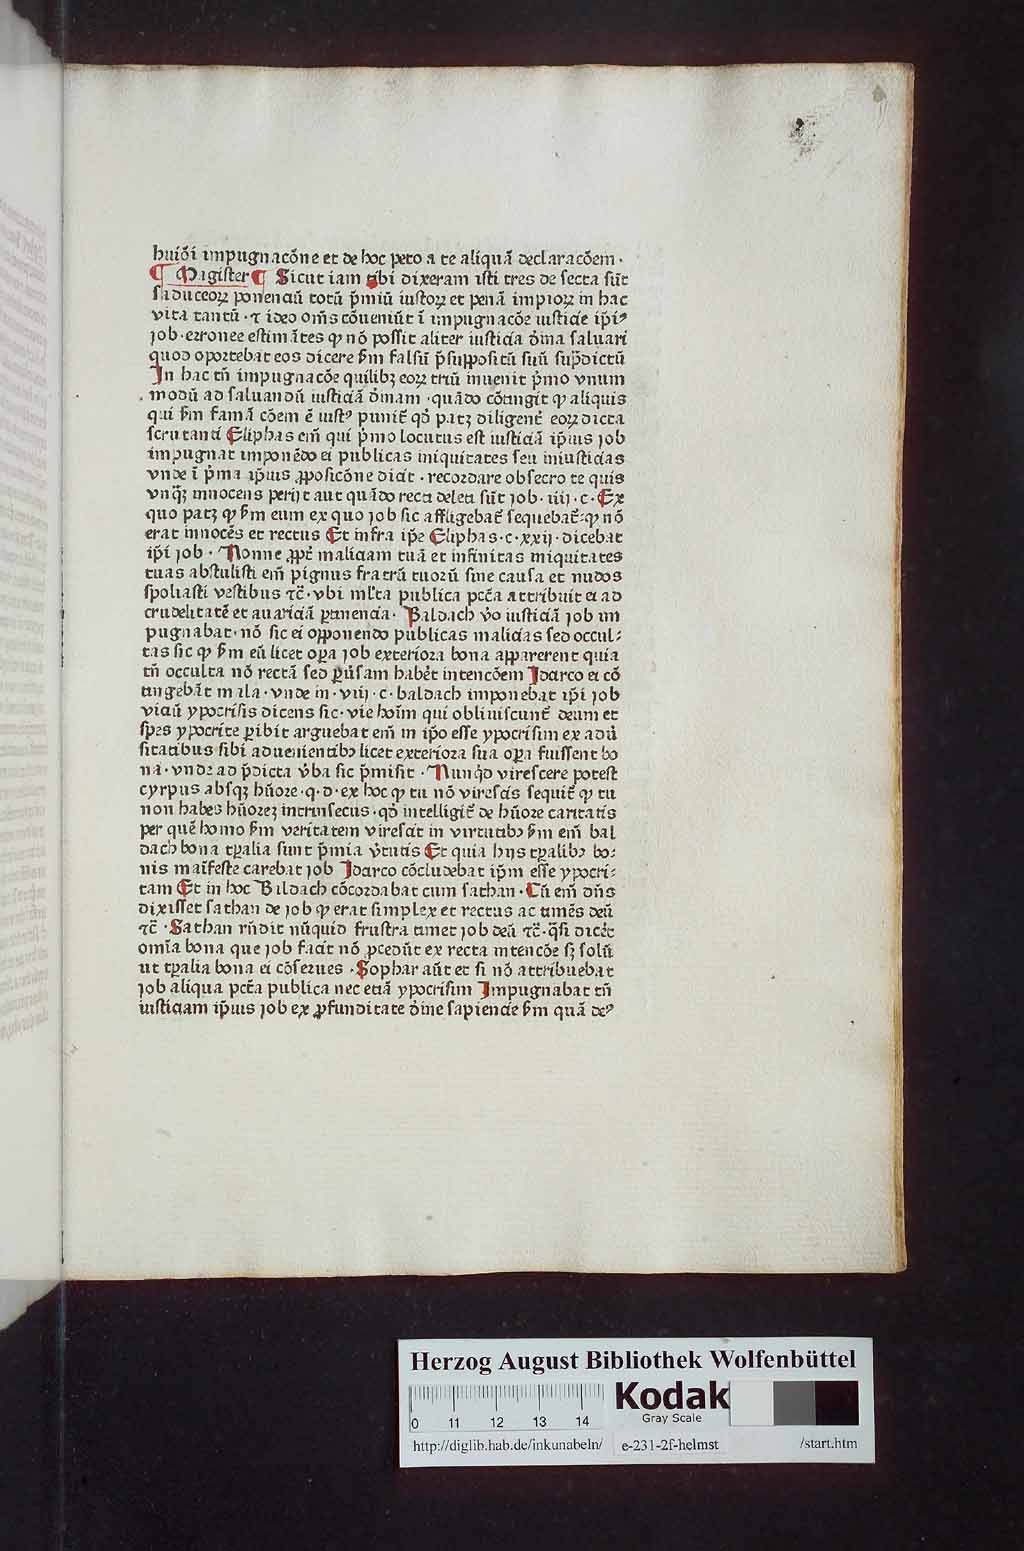 huiõi impugnacõne et de hoc peto a te aliquã declaracõem ·
¶ Magister ¶ Sicut iam tibi dixeram isti tres de secta sũt
saduceoꝝ ponenciũ totũ p̃miũ iustoꝝ et penã impioꝝ in hac
vita tantũ · ⁊ ideo oms̃ cõueniũt ĩ impugnacõe iusticie ip̃iꝰ
job · erronee estimãtes ꝙ nõ possit aliter iusticia d̓ina saluari
quod oportebat eos dicere ẜm falsũ p̃suppositũ suũ sup̃dictũ
In hac tñ impugnacõe quilibꝫ eoꝝ triũ inuenit p̓mo vnum
modũ ad saluandũ iusticiã d̓inam · quãdo cõtingit ꝙ aliquis
qui ẜm famã cõem ẽ iustꝰ punit̃ qd̓ patꝫ diligent̓ eoꝝ dicta
scrutanti Eliphas em̃ qui p̓mo locutus est iusticiã ip̃ius job
impugnat imponẽdo ei publicas iniquitates seu iniusticias
vnde ĩ p̓ma ip̃ius ꝓposicõne dicit · recordare obsecro te quis
vnq̃ꝫ innocens perijt aut quãdo recti deleti sũt job · iiij · c · Ex
quo patꝫ ꝙ ẜm eum ex quo job sic affligebat̃ sequebat̃ · ꝙ nõ
erat innocẽs et rectus Et infra ip̃e Eliphas · c · xxij · dicebat
ip̃i job · Nonne ꝓpt̓ maliciam tuã et infinitas iniquitates
tuas abstulisti em̃ pignus fratrũ tuorũ sine causa et nudos
spoliasti vestibus ⁊c̃ · vbi ml̃ta publica pctã attribuit ei ad
crudelitatẽ et auariciã ꝑtinencia · Baldach v̓o iusticiã job im
pugnabat · nõ sic ei opponendo publicas malicias sed occul⸗
tas sic ꝙ ẜm eũ licet oꝑa job exteriora bona apparerent quia
tñ occulta nõ rectã sed ꝑu̓sam habe̓t intencõem Idarco ei cõ
tingebãt mala · vnde in · viij · c · baldach imponebat ip̃i job
viciũ ypocrisis dicens sic · vie hoĩm qui obliuiscunt̃ deum et
spes ypocrite ꝑibit arguebat em̃ in ip̃o esse ypocrisim ex adũ
sitatibus sibi aduenientibꝫ licet exteriora sua oꝑa fuissent bo
na · vnde ad p̃dicta v̓ba sic p̃misit · Nunq̃d virescere potest
cyrpus absqꝫ hũore · q · d · ex hoc ꝙ tu nõ virescis sequit̃ ꝙ tu
non habes hũoreꝫ intrinsecus · qd̓ intelligit̃ de hũore caritatis
per quẽ homo ẜm veritatem virescit in virtutibꝫ ẜm em̃ bal
dach bona tꝑalia sunt p̃mia v̓tutis Et quia hijs tꝑalibꝫ bo⸗
nis maĩfeste carebat job Idarco cõcludebat ip̃m esse ypocri⸗
tam Et in hoc Bildach cõcordabat cum sathan · Cũ em̃ dñs
dixisset sathan de job ꝙ erat simplex et rectus ac timẽs deũ
⁊c̃ · Sathan rñdit nũquid frustra timet job deũ ⁊c̃ · q̃si dice̓t
omĩa bona que job facit nõ ꝓcedũt ex recta intencõe sꝫ solũ
ut tꝑalia bona ei cõserues · Sophar aũt et si nõ attribuebat
job aliqua pctã publica nec etiã ypocrisim Impugnabat tñ
iusticiam ip̃ius job ex ꝓfunditate d̓ine sapiencie ẜm quã deꝰ
Herzog August Bibliothek Wolfenbüttel
0 11 12 13 14
Kodak
Gray Scale
http://diglib.hab.de/inkunabeln/ e-231-2f-helmst /start.htm